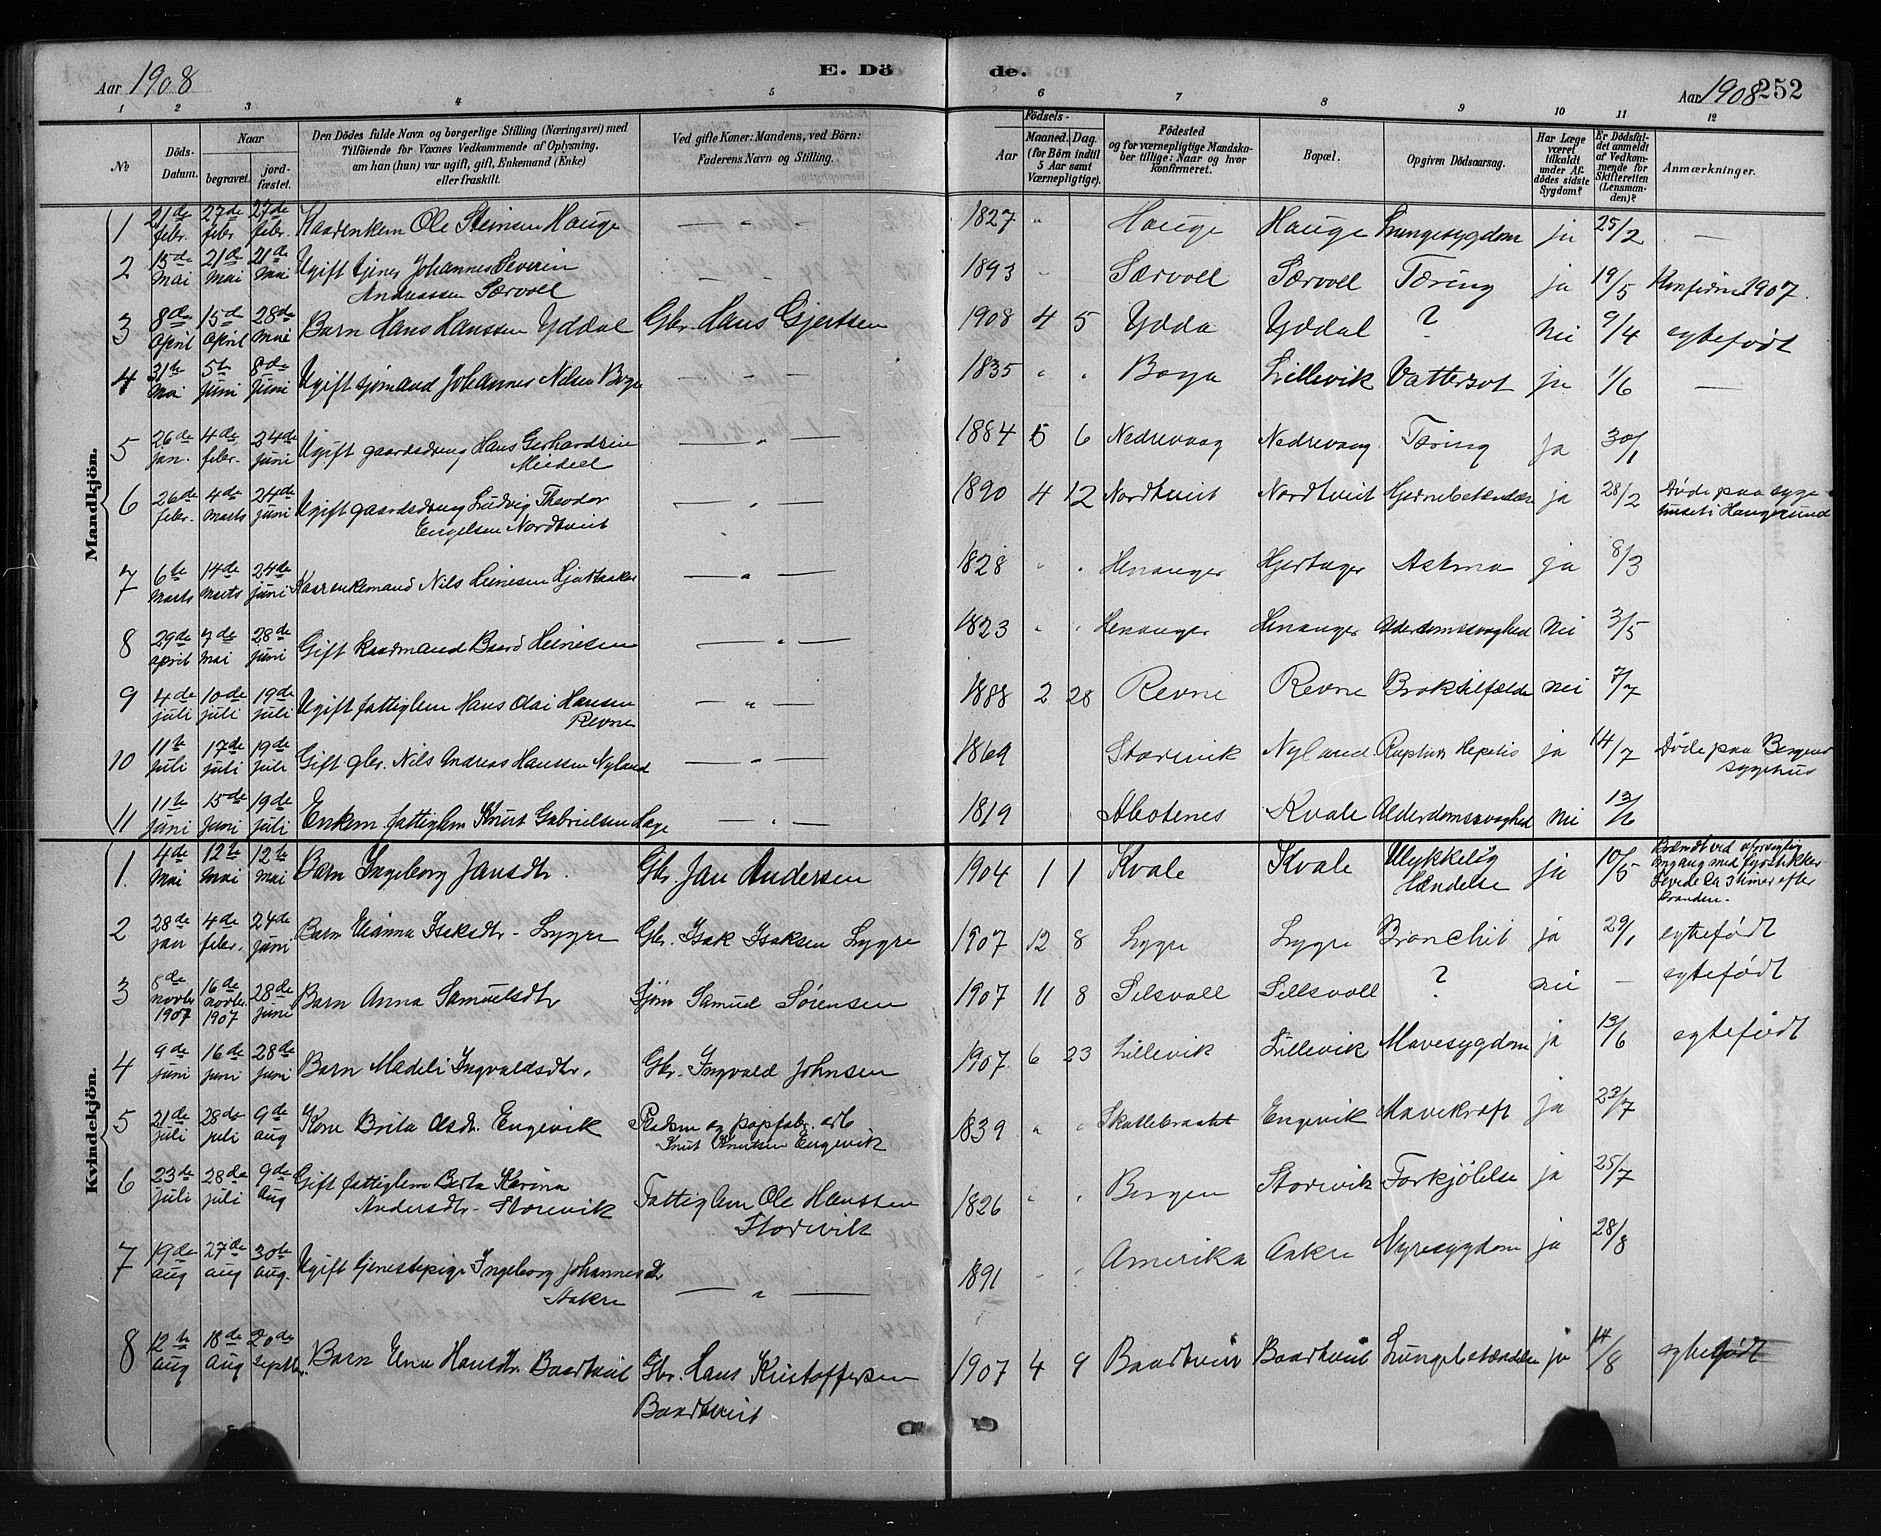 Aar 1908
E. Dö
de.
Aar 1908
252
1 2 3 4 5 6 7 8 9 10 11 12
№
Döds-Datum.
Naar
begravet.
jord-fæstet.
Den Dödes fulde Navn og borgerlige Stilling (Næringsvei) med
Tilföiende for Voxnes Vedkommende af Oplysning,
om han (hun) var ugift, gift, Enkemand (Enke)
eller fraskilt.
Ved gifte Koner: Mandens, ved Börn:
Faderens Navn og Stilling.
Födsels-
Aar
Maaned. Dag.
(for Börn indtil
5 Aar samt
Værnepligtige).
Födested
og for værnepligtige Mandska-
ber tillige: Naar og hvor
konfirmeret.
Bopæl.
Opgiven Dödsaarsag.
Har Læge
været
tilkaldt
under Af-
dödes sidste
Sygdom?
Er Dödsfal-
det anmeldt
af Vedkom-
mende for
Skifteretten
(Lensman-
den)?
Anmærkninger.
Mandkjön.
1 21de febr. 27de febr 27de febr. Kaarenkem Ole Steinsen Hauge — " — 1827 " Hauge Hauge Lungesygdom ja 25/2 —
2 15de Mai 21de Mai 21de Mai Ugift tjener Johannes Severin
Andreassen Særvoll — 1893 Særvoll Særvoll Tæring ja 19/5 Konfirm 1907.
3 8de April 15de April 28de Mai Barn Hans Hanssen Yddal Gbr. Hans Gjertsen 1908 4 5 Ydda Yddal ? Nei 9/4 egtefødt
4 31te Mai 5te Juni 8de Juni Ugift sjømand Johannes Nilsen — — — 1835 " " Lillevik Vattersot ja 1/6 —
5 26de jan. 4de febr. 24de juni Ugift gaardsdreng Hans Gerhardsen
— " — 1884 5 6 Nedrevaag Nedrevaag Tæring ja 30/1
6 26de febr. 4de Marts 24de juni Ugift gaardsdreng Ludvig Theodor
Engelsen Nordtveit — " — 1890 4 12 Nordtveit Nordtveit ja 28/2 Døde paa syge-
huset i Haugesund
7 6te Marts 14de Marts 24de juni Kaarenkemand Nils Heinesen — " — 1828 " " Henanger Astma ja 8/3
8 29de april 7de Mai 28de juni Gift kaarmand Baard Heinesen — " — 1823 " " Henanger Henanger Alderdomssvaghed Nei 3/5
9 4de juli 10de juli 19de juli Ugift fattiglem Hans Olai Hansen
Revne — " — 1888 2 28 Revne Revne Broktilfælde Nei 7/7
10 11te juli 17de juli 19de juli Gift gbr. Nils Andreas Hanssen Nyland — " — 1869 Storevik Nyland Hepatis ja 14/7 Døde paa Bergens
sygehus
11 11te juni 15de juni 19de juli Enkem. fattiglem Knut Gabrielsen — " — 1819 Kvale Alderdomssvaghed Nei 13/6
Kvindekjön.
1. 4de Mai 12te Mai 12te Mai Barn Ingeborg Jansdtr. Gbr. Jan Andersen 1904 1 1 Kvale Kvale Ulykkelig
Hændelse ja 10/5 Brændt ved uforsigtig
omgang med fyrstikker
Levede ca 3 timer efter
branden.
2 28de jan 4de febr. 24de juni Barn Isaksdtr. Lygre Gbr. Isak Isaksen Lygre 1907 12 8 Lygre Lygre Bronchit ja 29/1 egtefødt
3 8de novbr. 1907 16de novbr. 1907 28de juni Barn Anna Samuelsdtr Sjøm Samuel Sørensen 1907 11 8 ? nei — egtefødt
4 9de juni 16de juni 28de juni Barn Madeli Ingvaldsdtr. Gbr. Ingvald Johnsen 1907 6 23 Lillevik Lillevik Mavesygdom ja 13/6 egtefødt
5 21de juli 28de juli 9de aug Kone Brita Olsdtr. Engevik
Knut Knutsen Engevik 1839 " " Engevik Mavekræft ja 23/7
6 23de juli 28de juli 9de Aug Gift fattiglem Berta Karina
Andersdtr. Storevik Fattiglem Ole Hanssen
Storevik 1826 " " Bergen Storevik Forkjølelse ja 25/7
7 19de aug 27de aug 30te aug. Ugift tjenestepige Ingeborg Johannesdtr
Aakre — " — 1891 " " Amerika Aakre Nyresygdom ja 28/8
8 12te aug 18de Aug 20de septbr. Barn Hansdtr. Baardtveit Gbr. Hans Kristoffersen
Baardtveit 1907 4 9 Baardtveit Baardtveit Lungebetændelse ja 14/8 egtefødt